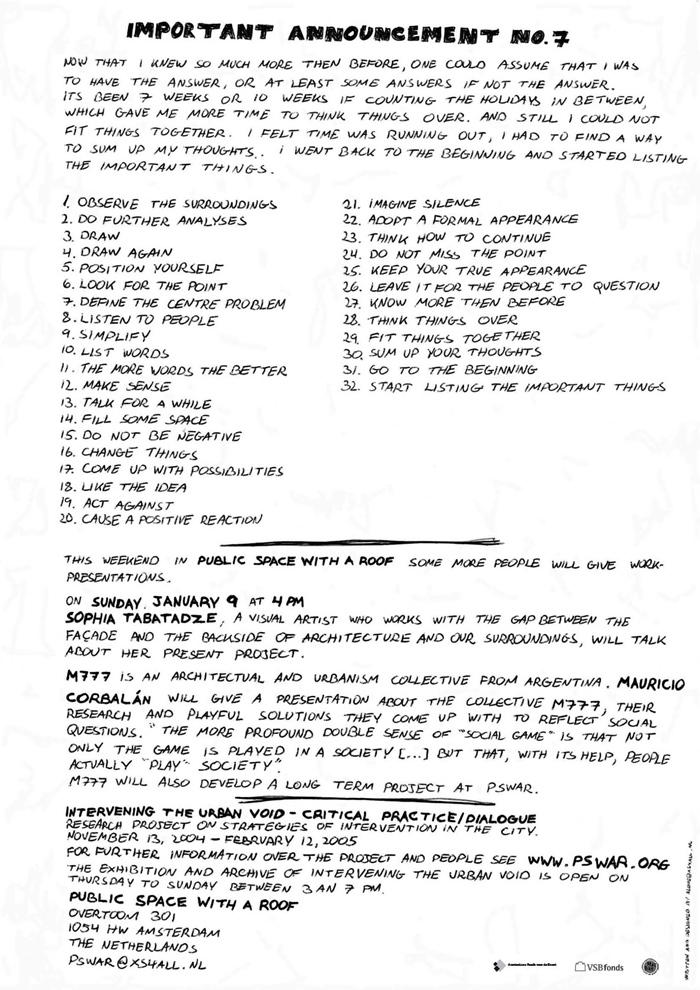 IMPORTANT ANNOUNCEMENT NO.7
NOW THAT I KNEW SO MUCH MORE THEN BEFORE, ONE COULD ASSUME THAT I WAS
TO HAVE THE ANSWER, OR AT LEAST SOME ANSWERS IF NOT THE ANSWER.
ITS BEEN 7 WEEKS OR 10 WEEKS IF COUNTING THE HOLIDAYS IN BETWEEN,
WHICH GAVE ME MORE TIME TO THINK THINGS OVER. AND STILL I COULD NOT
FIT THINGS TOGETHER. I FELT TIME WAS RUNNING OUT, I HAD TO FIND A WAY
TO SUM UP MY THOUGHTS.. I WENT BACK TO THE BEGINNING AND STARTED LISTING
THE IMPORTANT THINGS.
1. OBSERVE THE SURROUNDINGS
2. DO FURTHER ANALYSES
3. DRAW
4. DRAW AGAIN
5. POSITION YOURSELF
6. LOOK FOR THE POINT
7. DEFINE THE CENTRE PROBLEM
8. LISTEN TO PEOPLE
9. SIMPLIFY
10. LIST WORDS
11. THE MORE WORDS THE BETTER
12. MAKE SENSE
13. TALK FOR A WHILE
14. FILL SOME SPACE
15. DO NOT BE NEGATIVE
16. CHANGE THINGS
17. COME UP WITH POSSIBILITIES
18. LIKE THE IDEA
19. ACT AGAINST
20. CAUSE A POSITIVE REACTION
21. IMAGINE SILENCE
22. ADOPT A FORMAL APPEARANCE
23. THINK HOW TO CONTINUE
24. DO NOT MISS THE POINT
25. KEEP YOUR TRUE APPEARANCE
26. LEAVE IT FOR THE PEOPLE TO QUESTION
27. KNOW MORE THEN BEFORE
28. THINK THINGS OVER
29. FIT THINGS TOGETHER
30. SUM UP YOUR THOUGHTS
31. GO TO THE BEGINNING
32. START LISTING THE IMPORTANT THINGS
THIS WEEKEND IN PUBLIC SPACE WITH A ROOF SOME MORE PEOPLE WILL GIVE WORK-
PRESENTATIONS.
ON SUNDAY. JANUARY 9 AT 4 PM
SOPHIA TABATADZE, A VISUAL ARTIST WHO WORKS WITH THE GAP BETWEEN THE
FAÇADE AND THE BACKSIDE OF ARCHITECTURE AND OUR SURROUNDINGS, WILL TALK
ABOUT HER PRESENT PROJECT.
M777 IS AN ARCHITECTUAL AND URBANISM COLLECTIVE FROM ARGENTINA. MAURICIO
CORBALÁN WILL GIVE A PRESENTATION ABOUT THE COLLECTIVE M777, THEIR
RESEARCH AND PLAYFUL SOLUTIONS THEY COME UP WITH TO REFLECT SOCIAL
QUESTIONS. "THE MORE PROFOUND DOUBLE SENSE OF "SOCIAL GAME" IS THAT NOT
ONLY THE GAME IS PLAYED IN A SOCIETY [...] BUT THAT, WITH ITS HELP, PEOPLE
ACTUALLY "PLAY" SOCIETY".
M777 WILL ALSO DEVELOP A LONG TERM PROJECT AT PSWAR.
INTERVENING THE URBAN VOID - CRITICAL PRACTICE/DIALOGUE
RESEARCH PROJECT ON STRATEGIES OF INTERVENTION IN THE CITY.
NOVEMBER 13, 2004 - FEBRUARY 12, 2005
FOR FURTHER INFORMATION OVER THE PROJECT AND PEOPLE SEE WWW.PSWAR.ORG
THE EXHIBITION AND ARCHIVE OF INTERVENING THE URBAN VOID IS OPEN ON
THURSDAY TO SUNDAY BETWEEN 3 AN 7 PM.
PUBLIC SPACE WITH A ROOF
OVERTOOM 301
1054 HW AMSTERDAM
THE NETHERLANDS
PSWAR@XS4ALL.NL
VSBfonds
WRITTEN AND DESIGNED BY